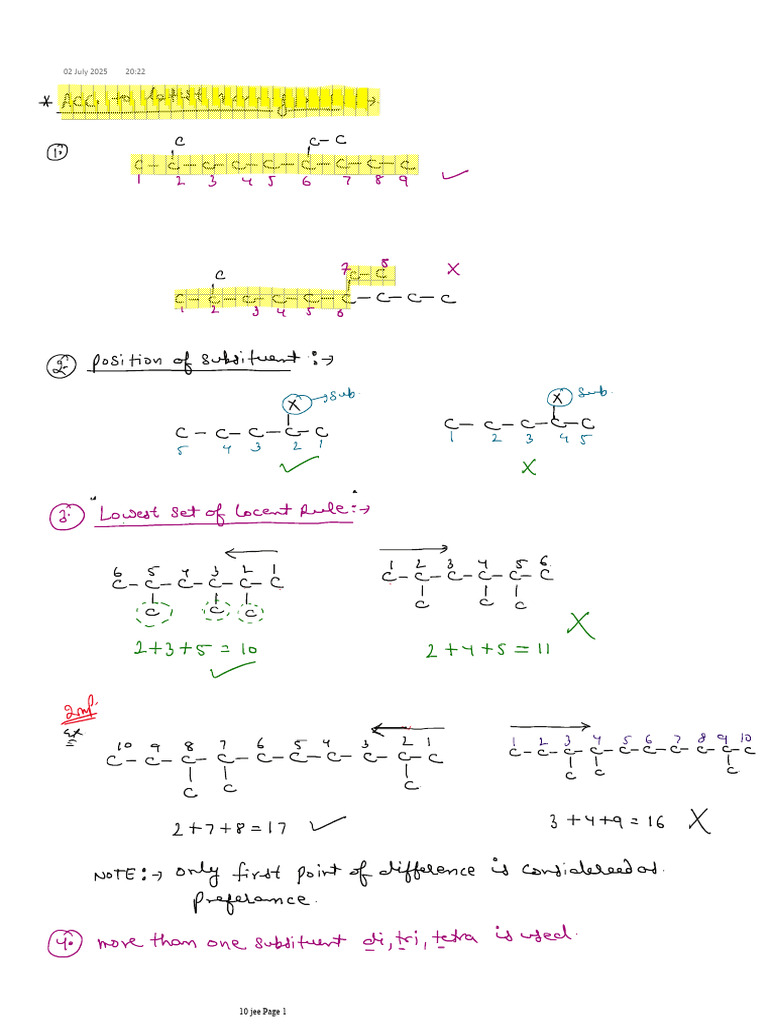 02 July 2025 20:22
* Acc. to
1.
C
C - C
C - C - C - C - C - C - C - C - C
1 2 3 4 5 6 7 8 9 ✓
7 8 X
C
C - C
C - C - C - C - C - C - C - C - C
1 2 3 4 5 6
2. Position of Subsituent :→
X → Sub.
X Sub.
C - C - C - C - C
5 4 3 2 1
✓
C - C - C - C - C
1 2 3 4 5
X
3. "Lowest Set of Locent Rule":→
←
6 5 4 3 2 1
C - C - C - C - C - C
C C C
2+3+5 = 10
✓
→
1 2 3 4 5 6
C - C - C - C - C - C
C C C
2+4+5 = 11 X
Imp.
Ex
←
10 9 8 7 6 5 4 3 2 1
C - C - C - C - C - C - C - C - C - C
C C C
2+7+8 = 17 ✓
→
1 2 3 4 5 6 7 8 9 10
C - C - C - C - C - C - C - C - C - C
C C C
3+4+9 = 16 X
NOTE :→ Only first point of difference is considereed as
Preferamce.
4. more than one subsituent di, tri, tetra is used.
10 jee Page 1